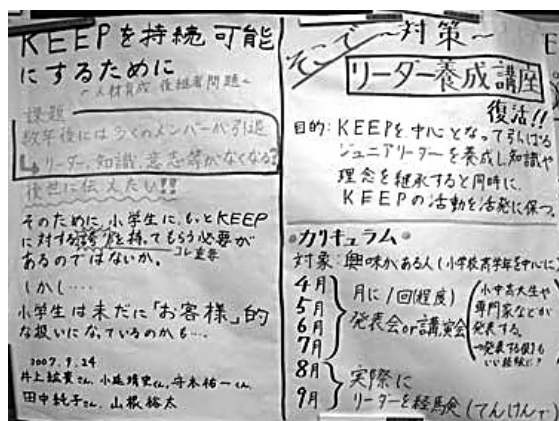 KEEPを持続可能
にするために
～人材育成 後継者問題～
課題
数年後には多くのメンバーが引退
↳リーダー、知識、意志等がなくなる?
後世に伝えたい!!
そのために、小学生に、もっとKEEP
に対する誇りを持ってもらう必要が
あるのではないか。
コレ重要
しかし…
小学生は未だに「お客様」的
な扱いになっているのかも…。
2007.9.24
井上 さん、小 くん、 祐一くん、
田中純子さん、山根裕太
そこで ～対策～
リーダー養成講座
復活!!
目的:KEEPを中心となって引っぱる
ジュニアリーダーを養成し知識や
理念を継承すると同時に、
KEEPの活動を活発に保つ
カリキュラム
対象:興味がある人(小学校高学年を中心に)
4月
5月
6月
7月
月に1回(程度)
発表会or講演会
小中高大生や
専門家などが
発表する。
⇒発表する側も
いい経験に?
8月
9月
実際に
リーダーを経験(てんけんで)